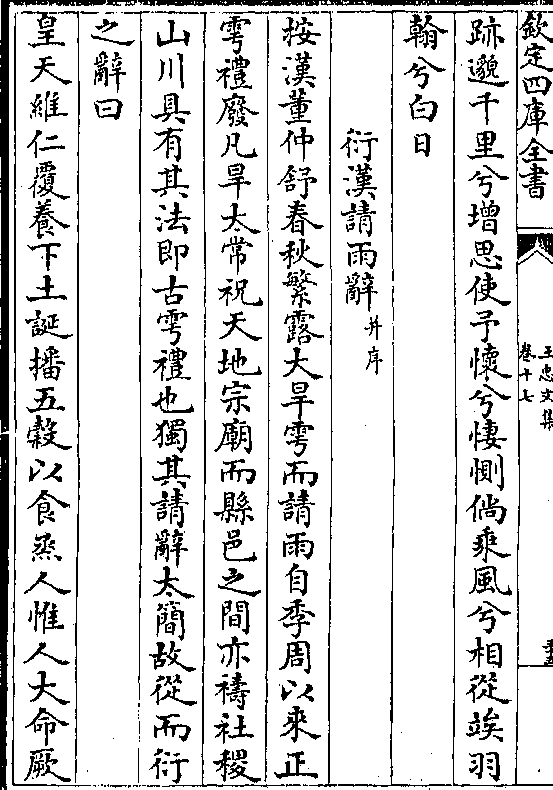 欽定四庫全書
王忠文集
卷十七
跡邈千里兮增思使予懷兮悽惻倘乘風兮相從竢羽
翰兮白日
衍漢請雨辭并序
按漢董仲舒春秋繁露大旱雩而請雨自季周以來正
雩禮廢凡旱太常祝天地宗廟而縣邑之間亦禱社稷
山川具有其法即古雩禮也獨其請辭太簡故從而衍
之辭曰
皇天維仁覆養下土誕播五穀以食烝人惟人大命厥